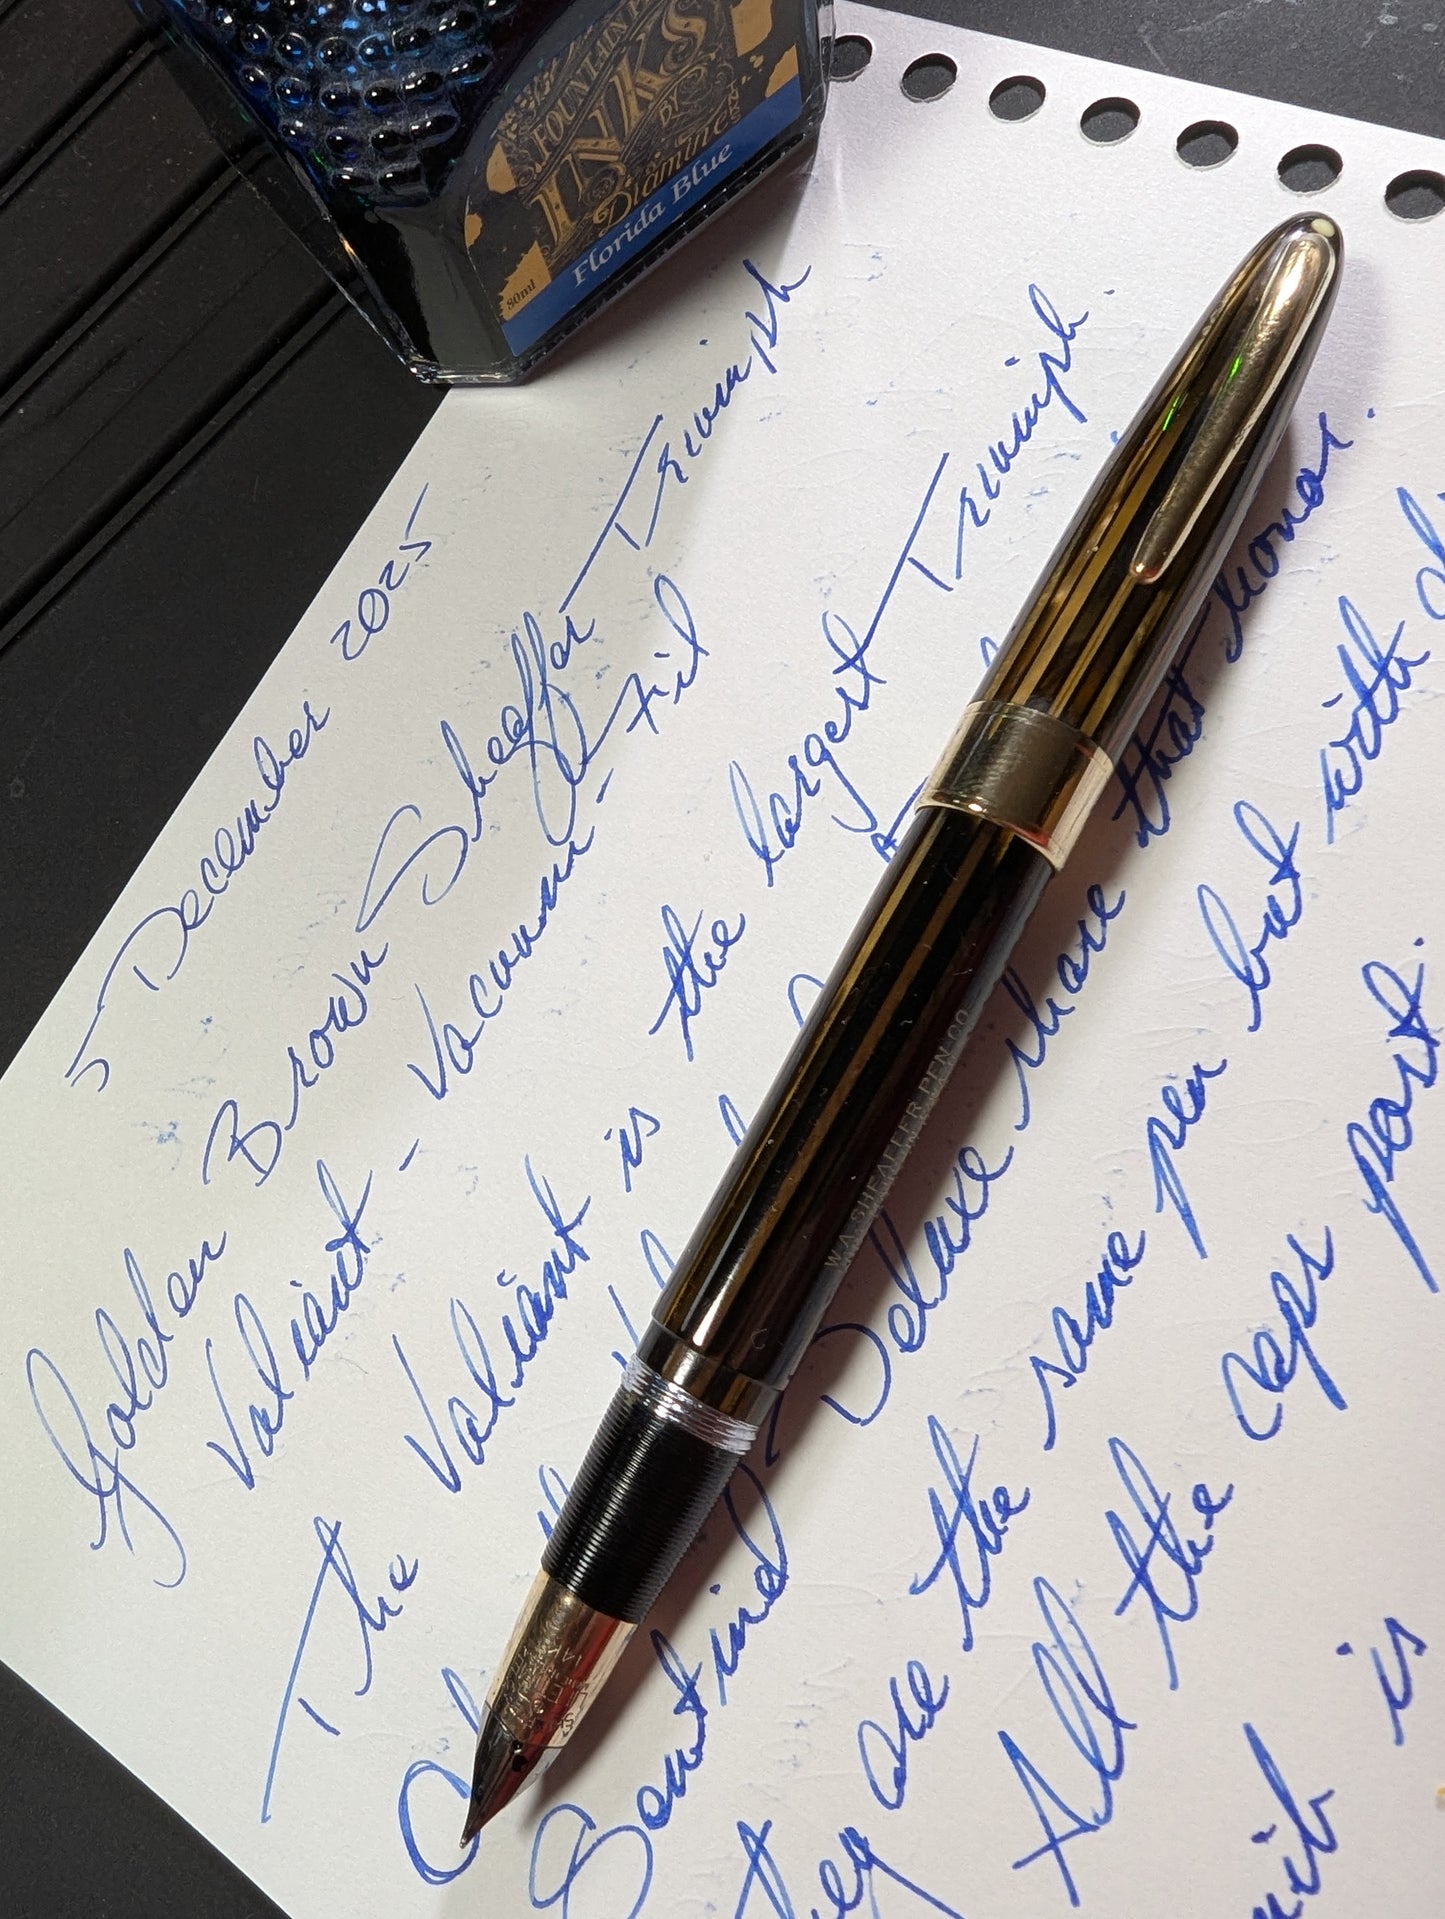 FOUNTAIN
INKS
BY
Diamine
Florida Blue
80ml
5 December 2025
Golden Brown Sheaffer Triumph
Valiant - Vacuum-Fil
The Valiant is the largest Triumph.
Sentinel Deluxe share that honor.
They are the same pen but with
All the caps port.
nib is
W.A. SHEAFFER PEN CO.